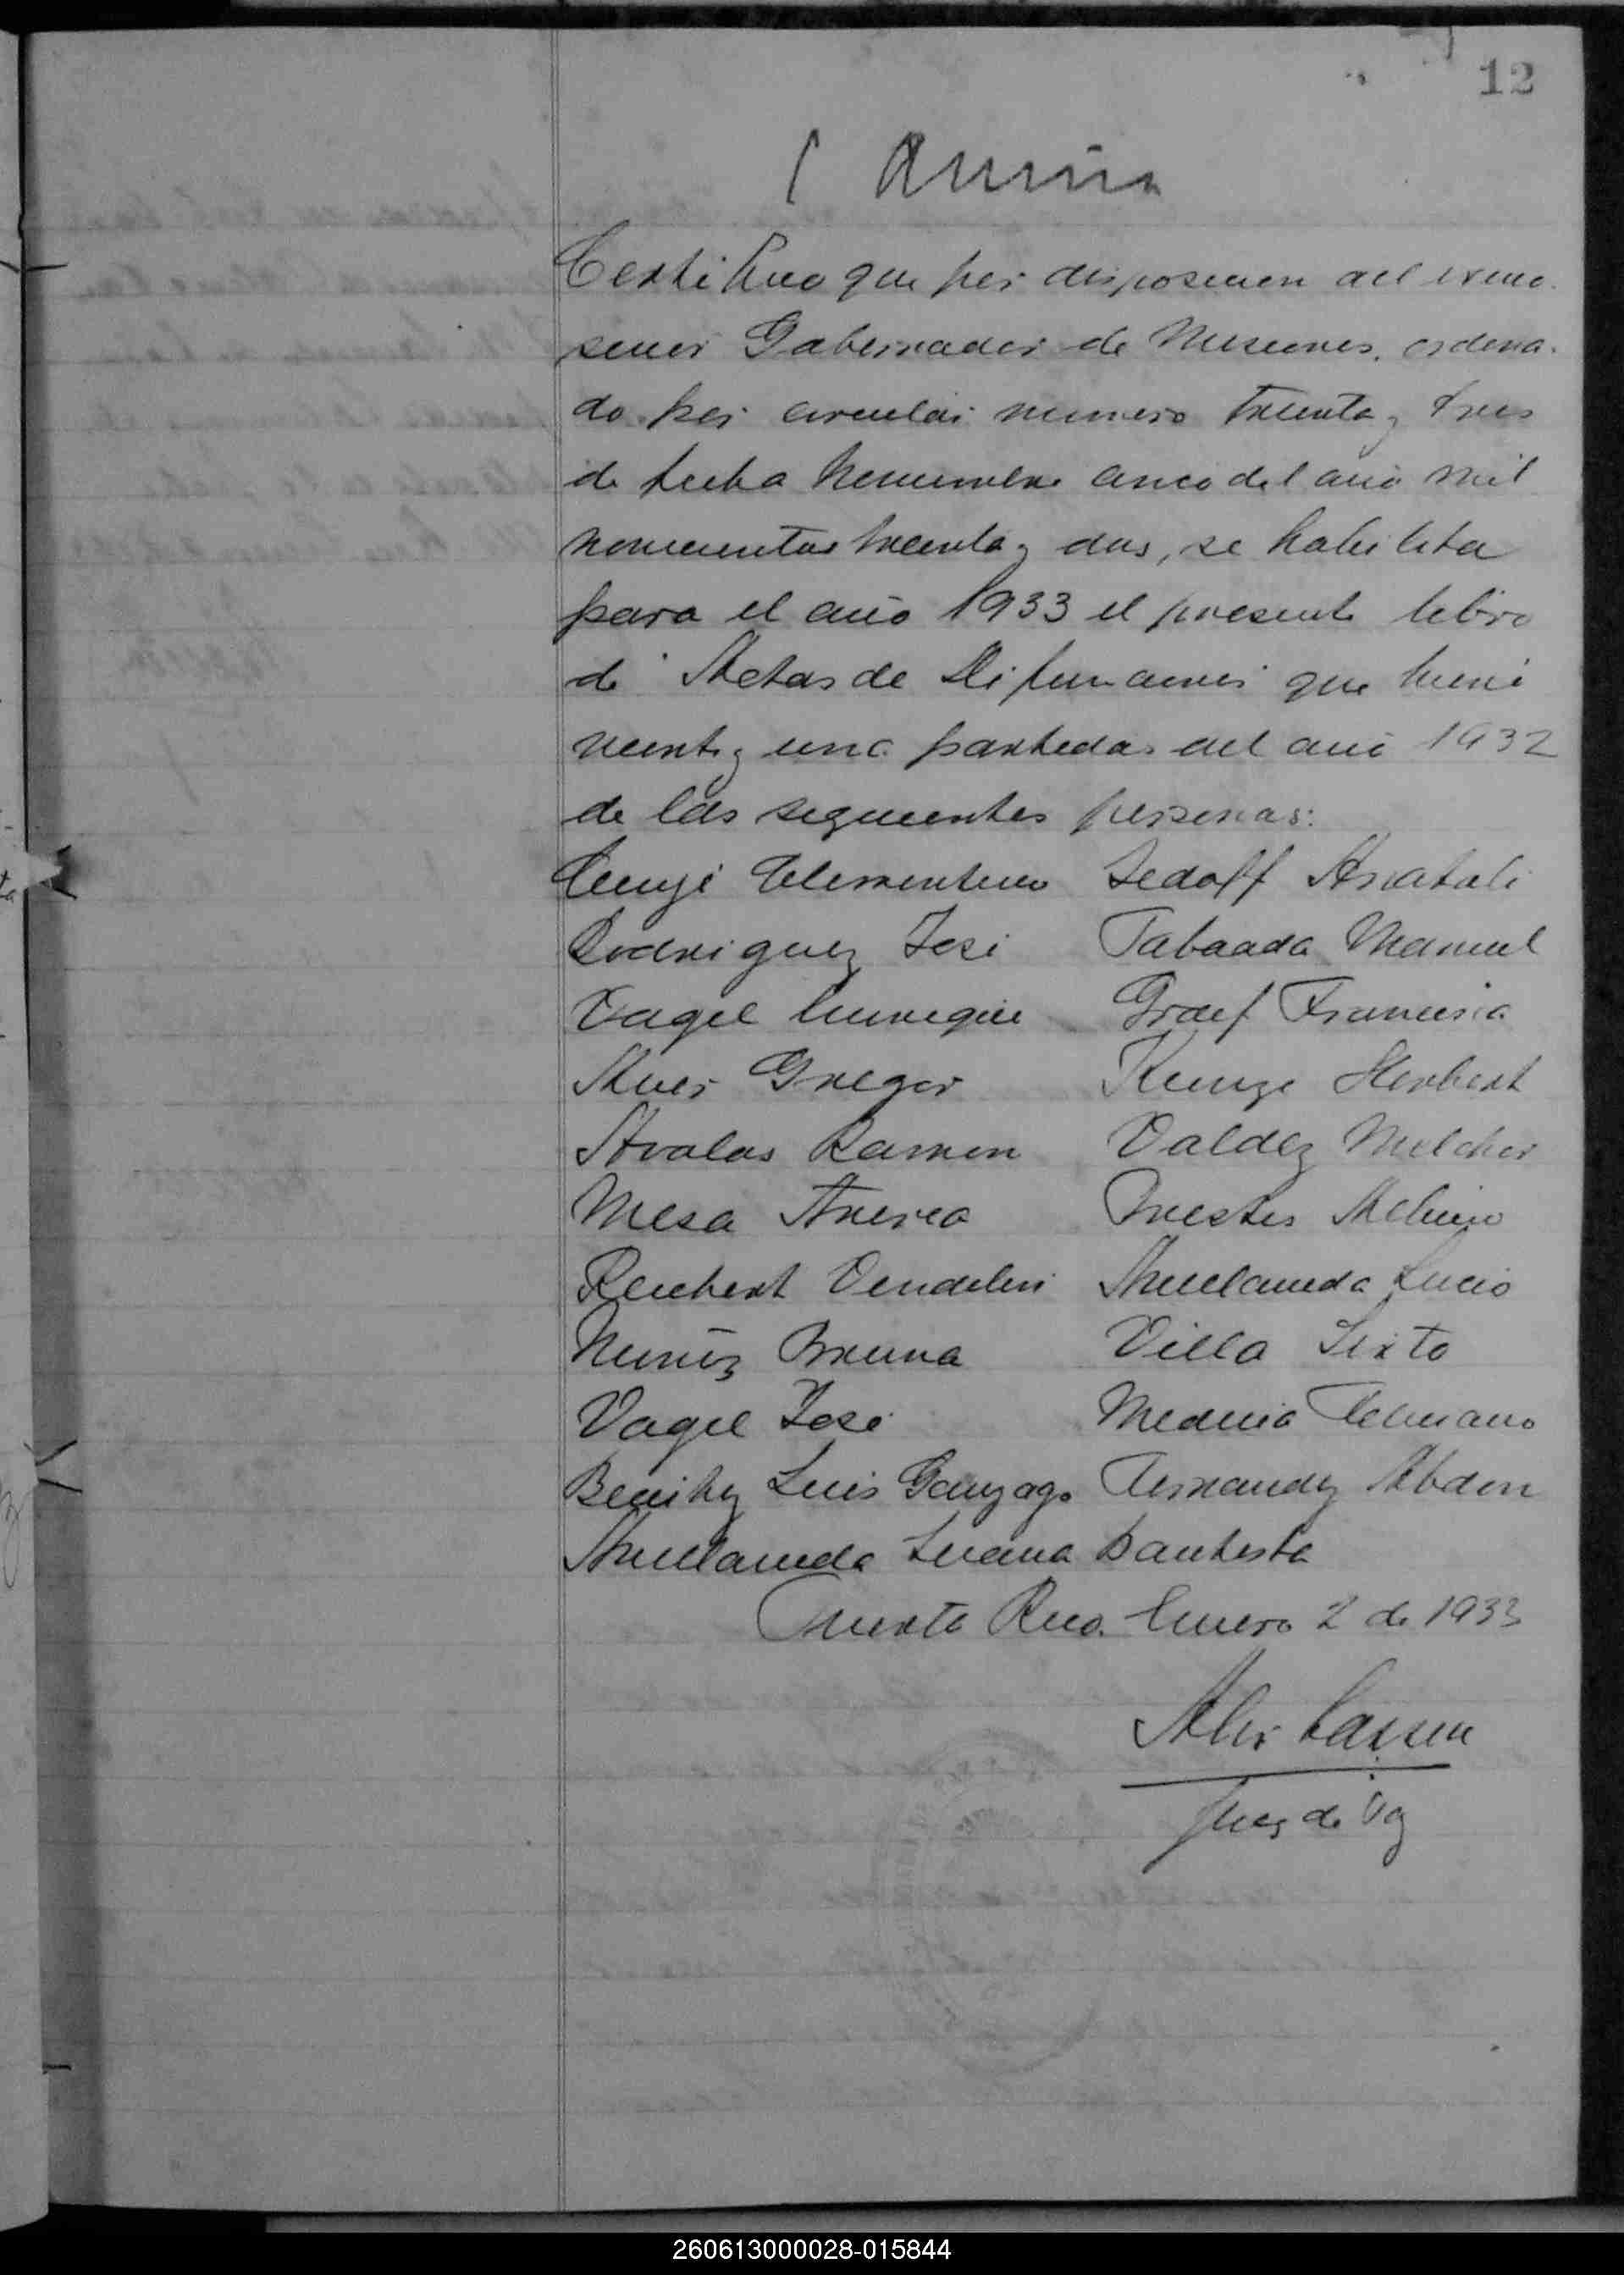 12
Certifico que por disposicion del exmo.
señor Gobernador de Misiones, ordena-
do por circular numero treinta y tres
de fecha Noviembre cinco del año mil
novecientos treinta y dos, se habilita
para el año 1933 el presente libro
de Actas de Defunciones que tiene
veinte y una partidas del año 1932
de las siguientes personas:
Clementino Sedoff Anatoli
Rodriguez José Taboada Manuel
Vogel Graef Francisca
Gregor Kunze Herbert
Avalos Ramon Valdez Melchor
Mesa Prestes
Reichert Vendelin Avellaneda Lucio
Nuñez Bruna Villa Sixto
Vogel José Medina Feliciano
Benitez Luis Gonzaga Fernandez Abdon
Avellaneda Bautista
Puerto Rico. Enero 2 de 1933
Juez de Paz
260613000028-015844